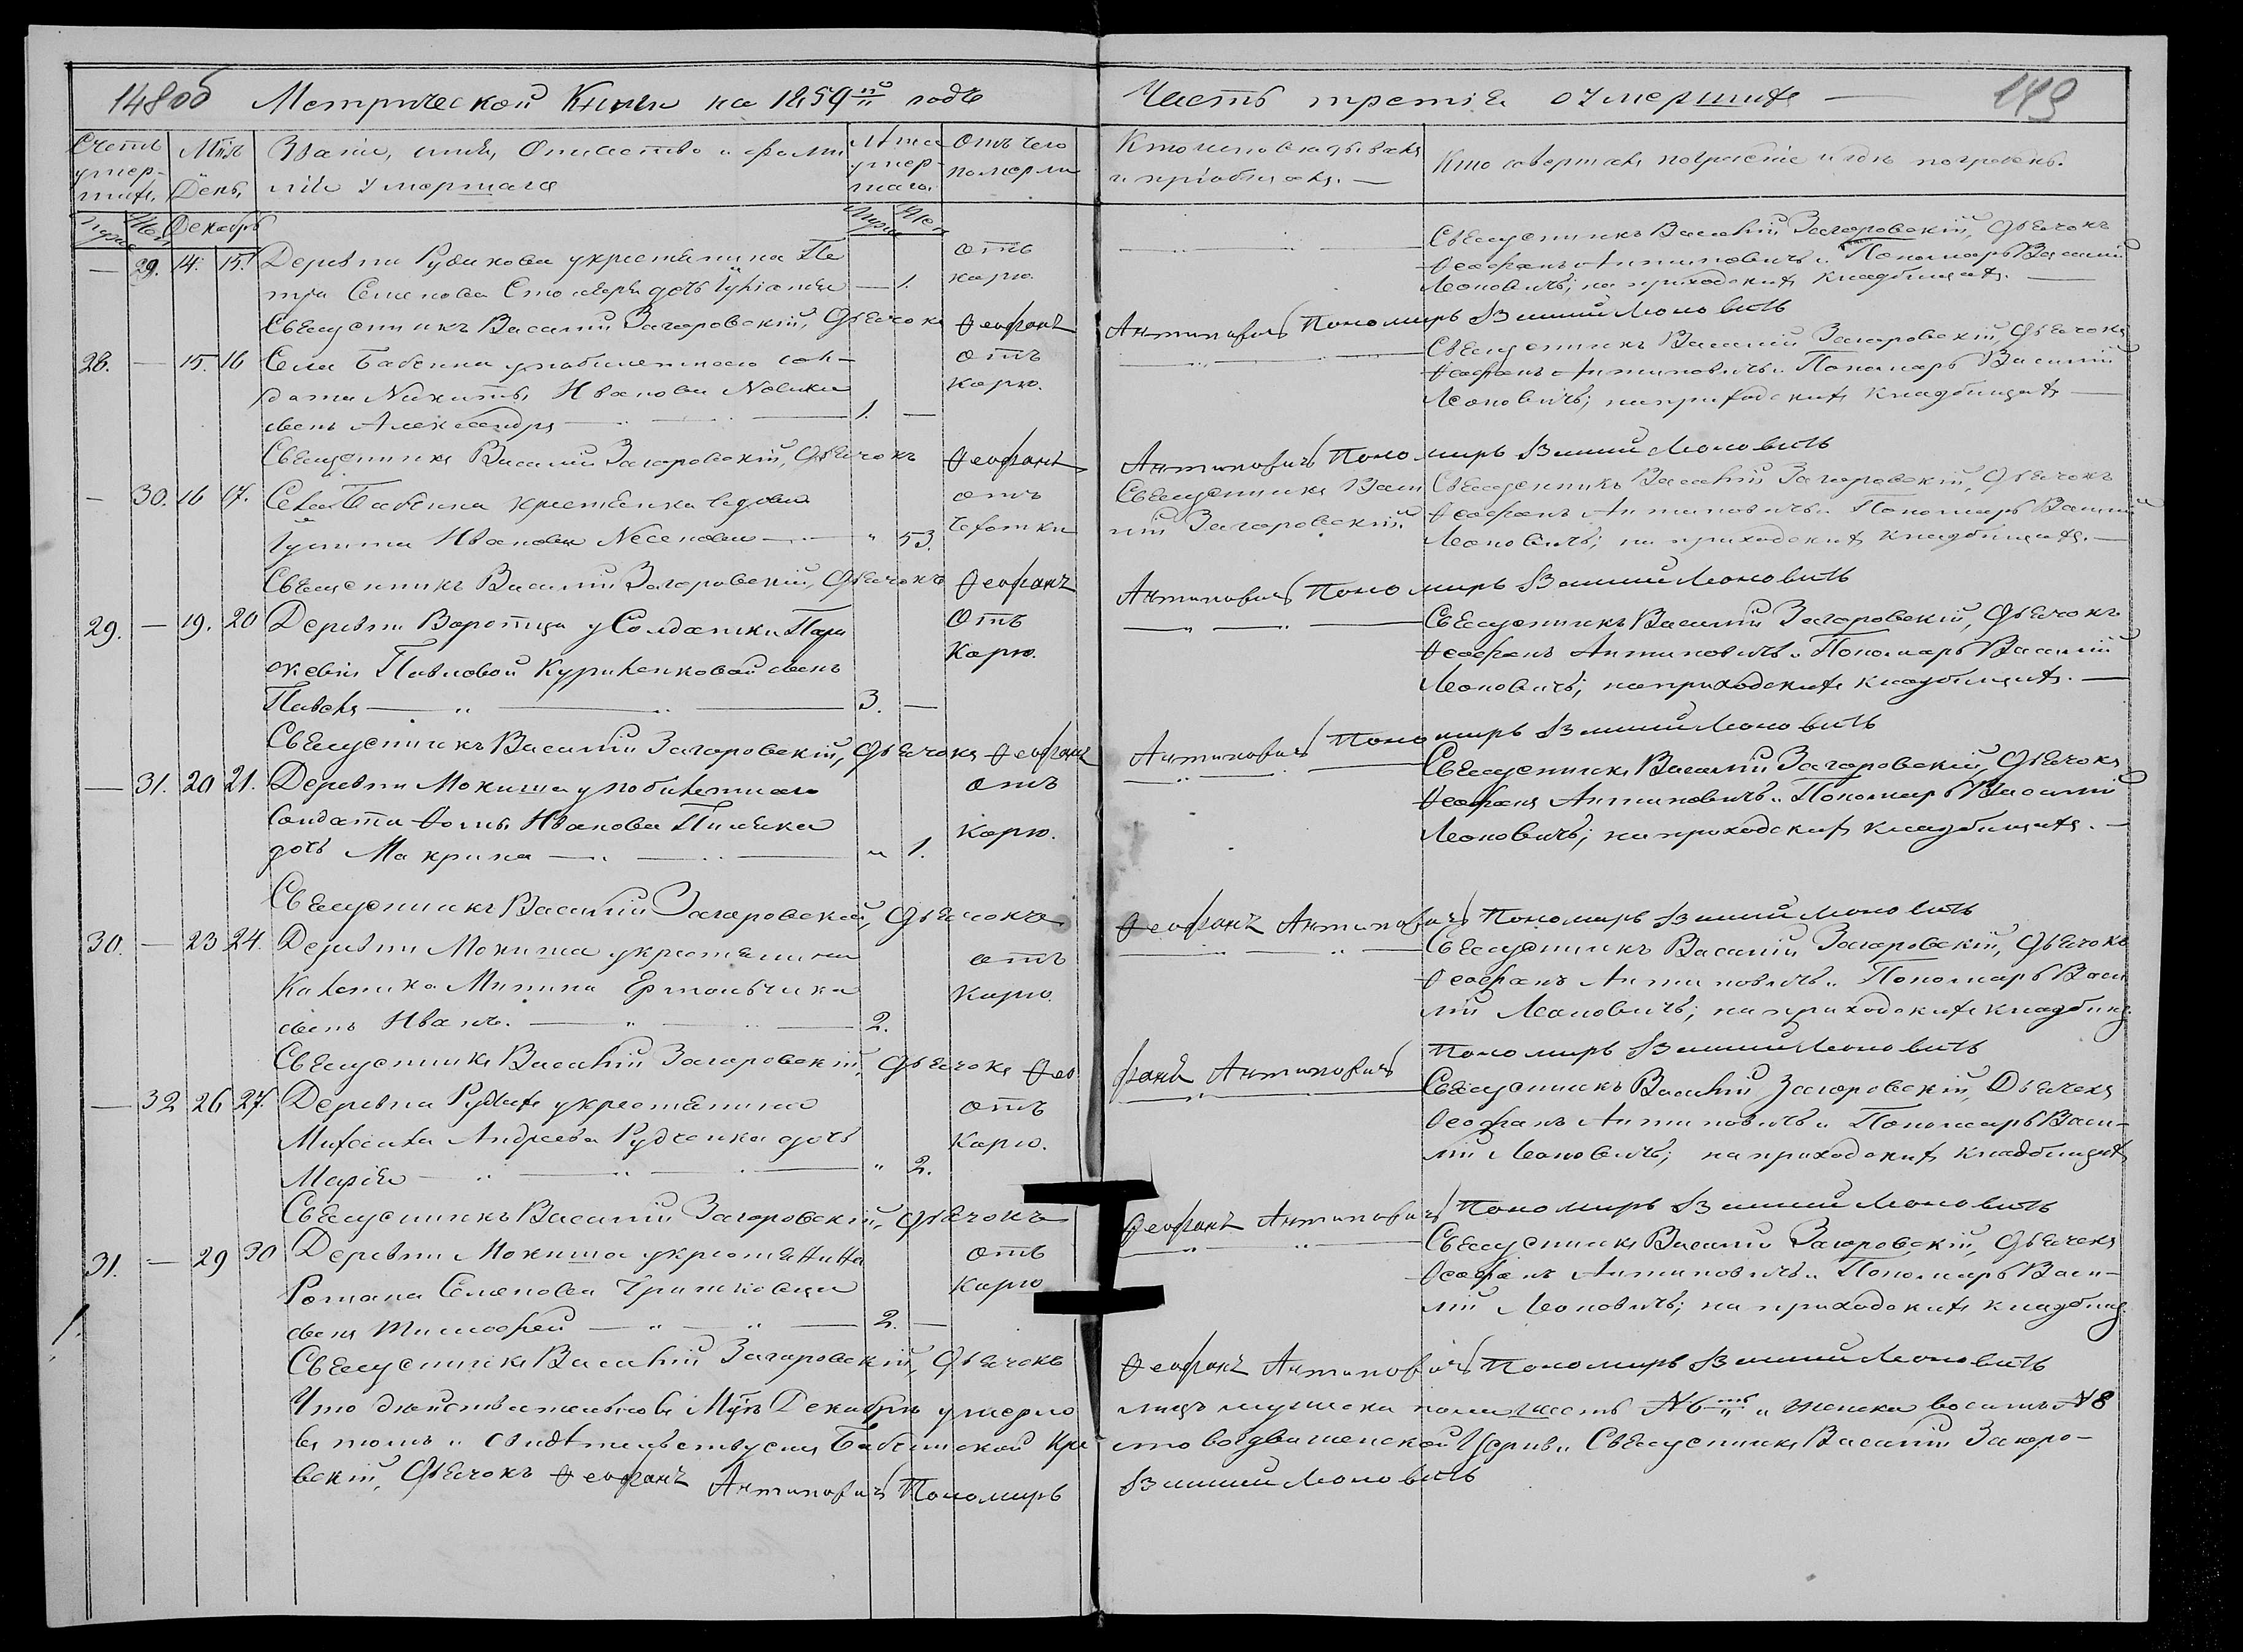 148об Метрической Книги на 1859й годъ
Часть третія о умершихъ
149
Счетъ умер-шихъ.
Мць День
Званіе, имя, Отчество и фами
лія умершаго
Лѣта умер-шаго.
Отъ чего померли
Кто исповѣдывалъ
и пріобщалъ.
Кто совершалъ погребеніе и гдѣ погребенъ.
Декабрь
— 29. 14. 15. Деревни Рудакова у крестьянина Пе
тра Семенова дочь — 1.
отъ
корю.
Священникъ Василій Загоровскій, Дьячокъ
Ѳеофанъ Антиповичъ и Пономарь Василій
Леоновичъ; на приходскихъ кладбищахъ.
Священникъ Василій Загоровскій, Дьячокъ Ѳеофанъ Антиповичъ Пономарь Василій Леоновичь
28. — 15. 16 Села Бабчина у побилетного сол-
дата Никиты Иванова Новика
сынъ Александръ 1. —
отъ
Корю.
Священникъ Василій Загоровскій, Дьячокъ
Ѳеофанъ Антиповичъ и Пономарь Василій
Леоновичъ; на приходскихъ кладбищахъ
Священникъ Василій Загоровскій, Дьячокъ Ѳеофанъ Антиповичъ Пономарь Василій Леоновичь
— 30. 16 17. Села Бабчина крестьянка вдова
Іустина Иванова " 53.
отъ
чехотки
Священникъ Васи
лій Загоровскій.
Священникъ Василій Загоровскій, Дьячокъ
Ѳеофанъ Антиповичъ и Пономарь Василій
Леоновичъ; на приходскихъ кладбищахъ.
Священникъ Василій Загоровскій, Дьячокъ Ѳеофанъ Антиповичъ Пономарь Василій Леоновичь
29. — 19. 20 Деревни Воротца у Солдатки Пара
скевіи Павловой Куриленковой сынъ
Павелъ 3. —
Отъ
Корю.
Священникъ Василій Загоровскій, Дьячокъ
Ѳеофанъ Антиповичъ и Пономарь Василій
Леоновичъ; на приходскихъ кладбищахъ.
Священникъ Василій Загоровскій, Дьячокъ Ѳеофанъ Антиповичъ Пономарь Василій Леоновичь
— 31. 20 21. Деревни Мокиша у побилетного
Солдата Ѳомы Иванова
дочь Макрина " 1.
отъ
Корю.
Священникъ Василій Загоровскій, Дьячокъ
Ѳеофанъ Антиповичъ и Пономарь Василій
Леоновичъ; на приходскихъ кладбищахъ.
Священникъ Василій Загоровскій, Дьячокъ Ѳеофанъ Антиповичъ Пономарь Василій Леоновичь
30. — 23 24. Деревни Мокиша у крестьянина
Каленика Минина Ермольчика
сынъ Иванъ. 2.
отъ
Корю.
Священникъ Василій Загоровскій, Дьячокъ
Ѳеофанъ Антиповичъ и Пономарь Васи
лій Леоновичъ; на приходскихъ кладбищ.
Священникъ Василій Загоровскій, Дьячокъ Ѳеофанъ Антиповичъ Пономарь Василій Леоновичь
— 32 26 27. Деревни Рудыхъ у крестьянина
Михаила Андреева Рудченка дочь
Марія " 2.
отъ
Корю.
Священникъ Василій Загоровскій, Дьячекъ
Ѳеофанъ Антиповичъ и Пономарь Васи-
лій Леоновичъ; на приходскихъ кладбищахъ
Священникъ Василій Загоровскій, Дьячокъ Ѳеофанъ Антиповичъ Пономарь Василій Леоновичь
31. — 29 30 Деревни Мокиша у крестьянина
Романа Семенова Гришковца
сынъ Тимофей 2. —
отъ
Корю
Священникъ Василій Загоровскій, Дьячекъ
Ѳеофанъ Антиповичъ и Пономарь Васи-
лій Леоновичъ; на приходскихъ кладбищ.
1.
Священникъ Василій Загоровскій, Дьячокъ Ѳеофанъ Антиповичъ Пономарь Василій Леоновичь
Что действительно въ Мцѣ Декабрѣ умерло лицъ мужеска пола шесть №6ть и женска восемь №8
въ томъ и свидѣтельствуемъ Бабчинской Кре стовоздвиженской Церкви Священникъ Василій Загоро-
вскій, Дьячокъ Ѳеофанъ Антиповичъ Пономарь Василій Леоновичь